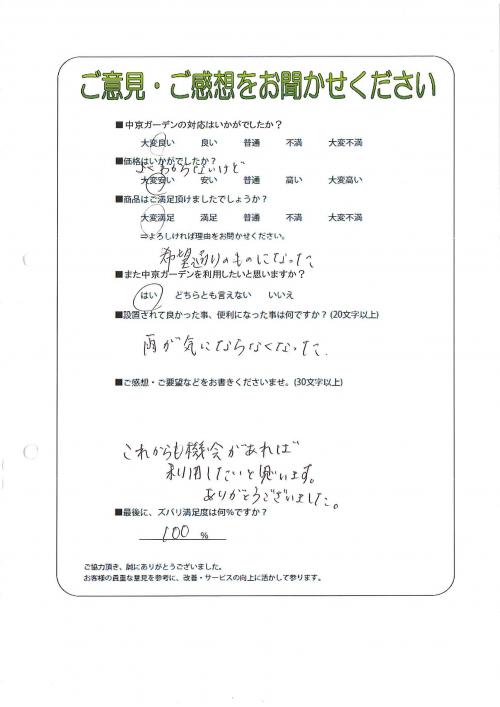 ご意見・ご感想をお聞かせください
■中京ガーデンの対応はいかがでしたか？
大変良い 良い 普通 不満 大変不満
■価格はいかがでしたか？
よくわからないけど
大変安い 安い 普通 高い 大変高い
■商品はご満足頂けましたでしょうか？
大変満足 満足 普通 不満 大変不満
⇒よろしければ理由をお聞かせください。
希望通りのものになった
■また中京ガーデンを利用したいと思いますか？
はい どちらとも言えない いいえ
■設置されて良かった事、便利になった事は何ですか？(20文字以上)
雨が気にならなくなった.
■ご感想・ご要望などをお書きくださいませ。(30文字以上)
これからも機会があれば
利用したいと思います。
ありがとうございました。
■最後に、ズバリ満足度は何％ですか？
100 %
ご協力頂き、誠にありがとうございました。
お客様の貴重な意見を参考に、改善・サービスの向上に活かして参ります。